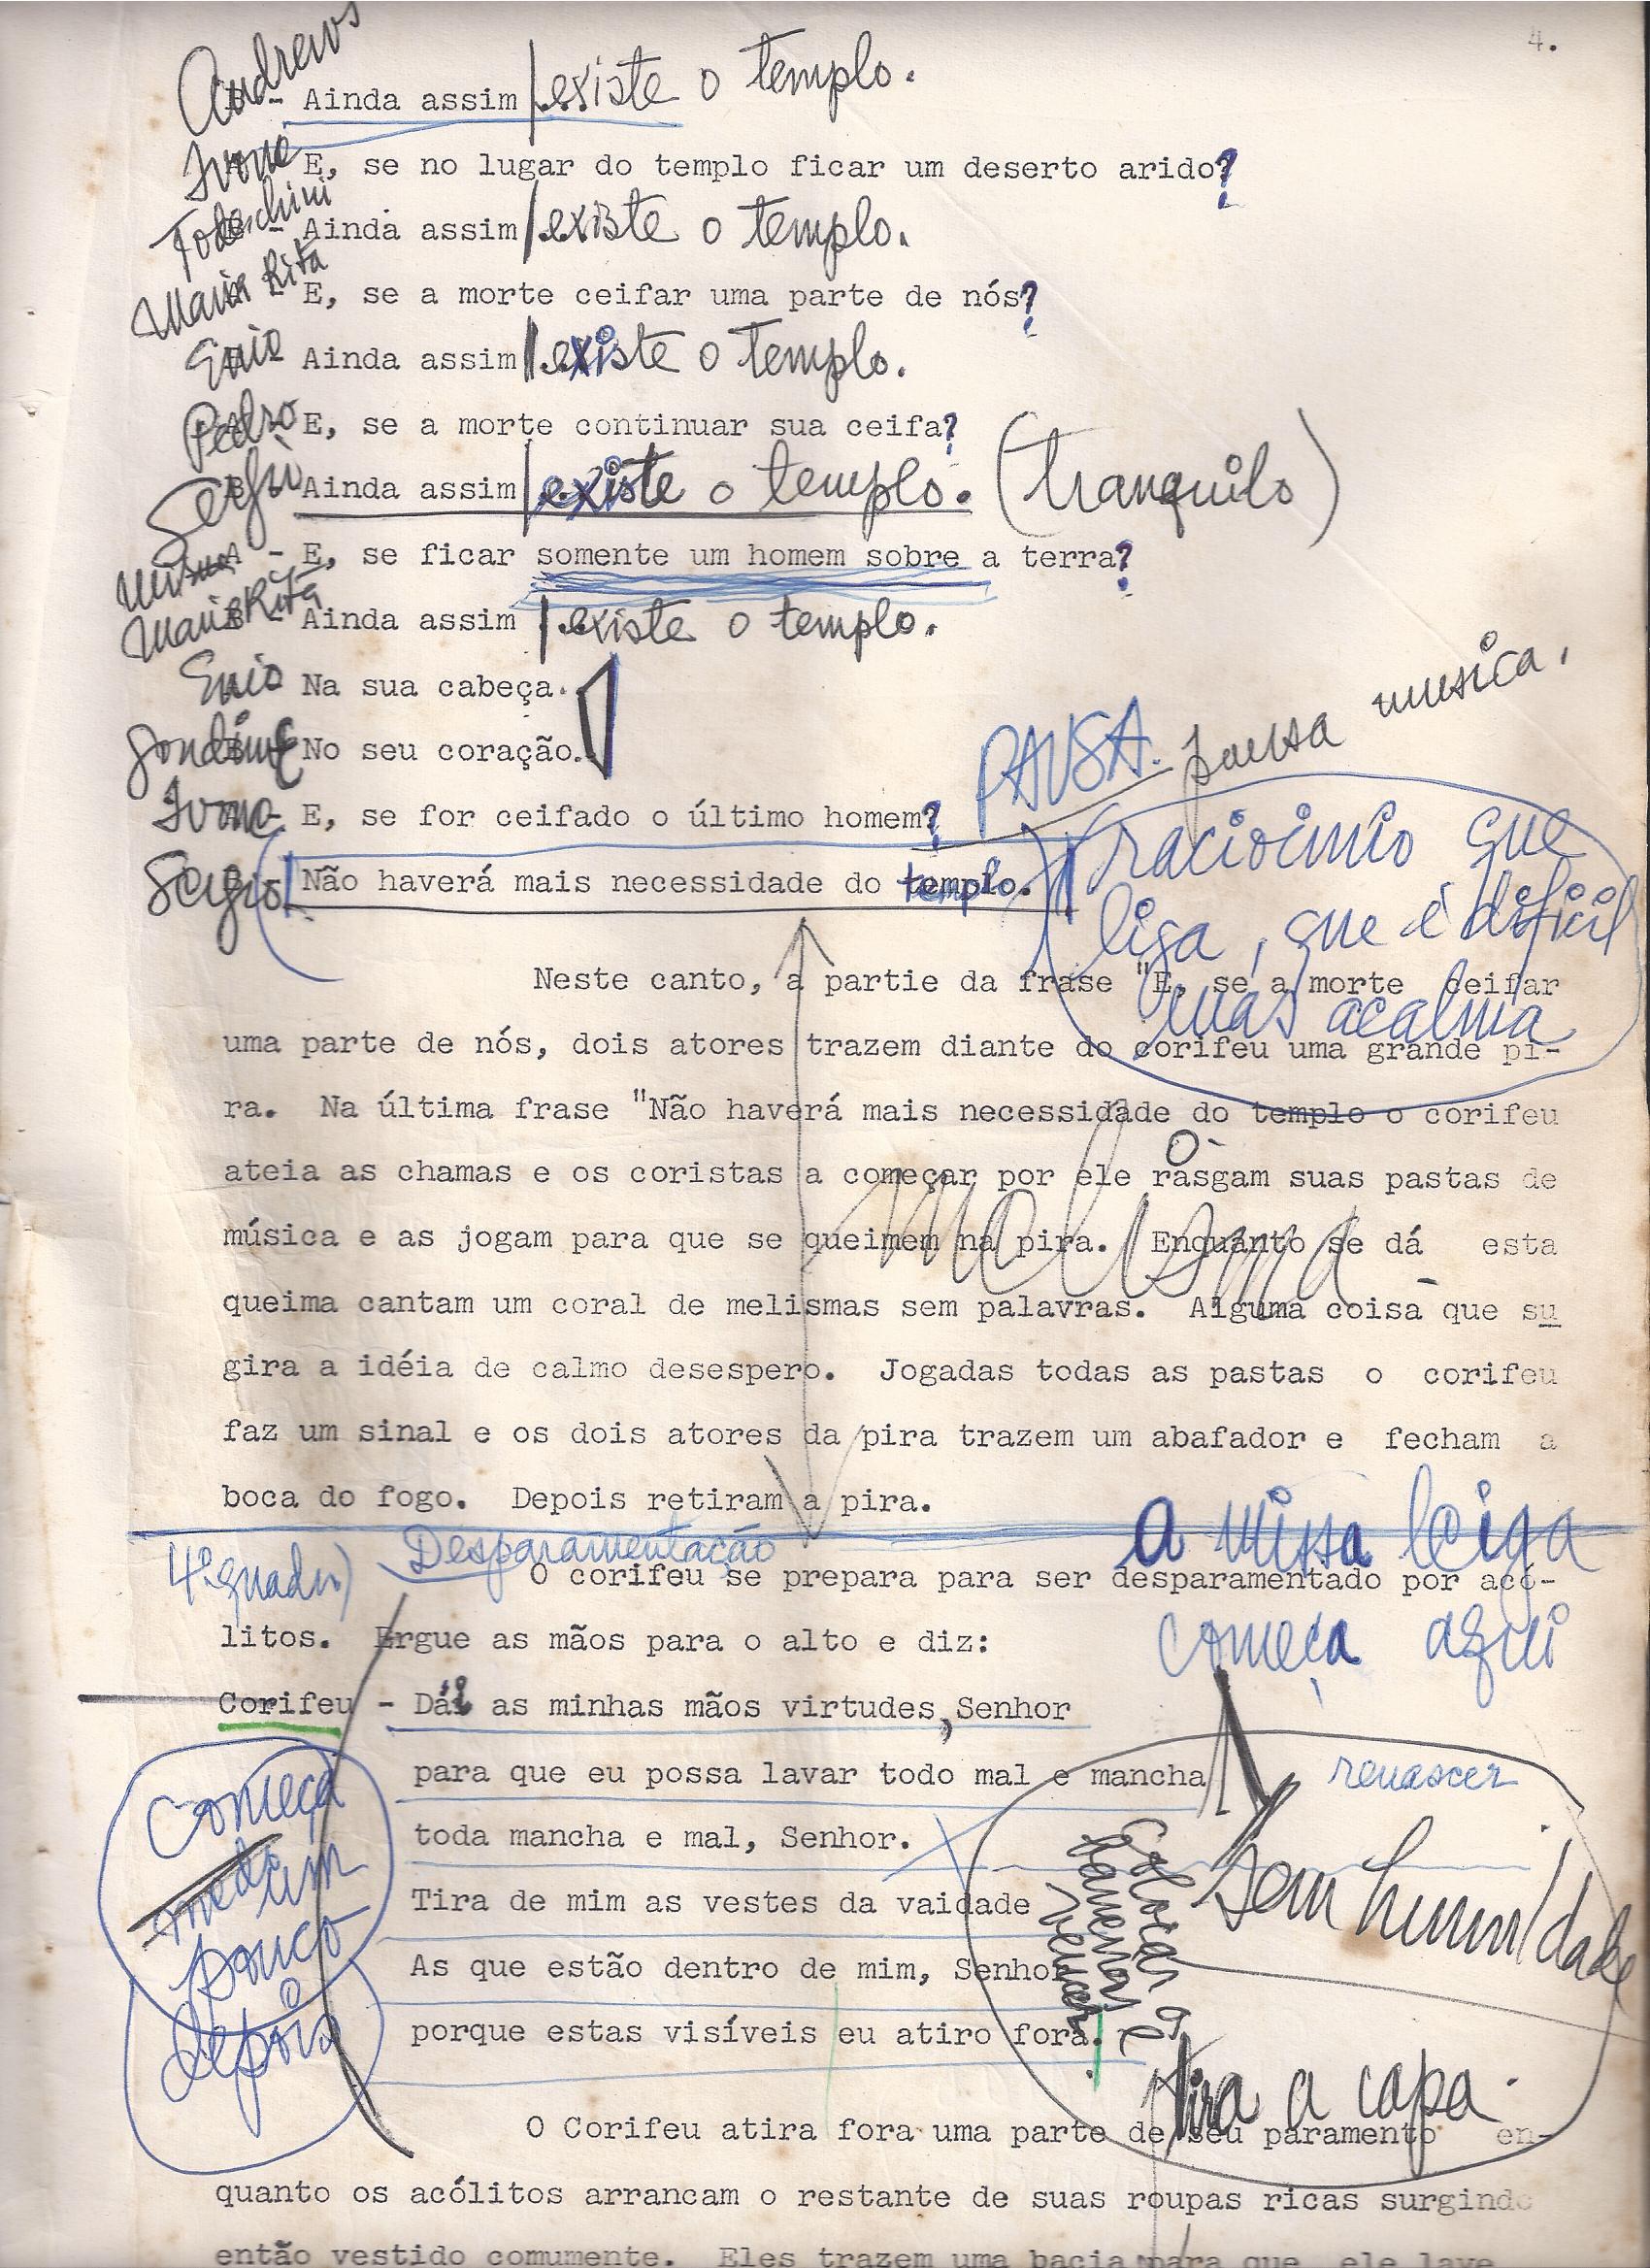 4.
Andrews - Ainda assim existe o templo.
Ivone E, se no lugar do templo ficar um deserto arido?
Todeschini Ainda assim existe o templo.
Maria Rita E, se a morte ceifar uma parte de nós?
Enio Ainda assim existe o templo.
Pedro E, se a morte continuar sua ceifa?
Sergio Ainda assim existe o templo. (tranquilo)
A - E, se ficar somente um homem sobre a terra?
Maria Rita Ainda assim existe o templo.
Enio Na sua cabeça.
No seu coração.
PAUSA. pausa musica.
Ivone E, se for ceifado o último homem?
Sergio Não haverá mais necessidade do templo.
raciocinio que
liga, que é dificil
mas acalma
Neste canto, a partie da frase "E, se a morte ceifar
uma parte de nós, dois atores trazem diante do corifeu uma grande pi-
ra. Na última frase "Não haverá mais necessidade do templo o corifeu
ateia as chamas e os coristas a começar por ele rasgam suas pastas de
música e as jogam para que se queimem na pira. Enquanto se dá esta
melisma
queima cantam um coral de melismas sem palavras. Alguma coisa que su
gira a idéia de calmo desespero. Jogadas todas as pastas o corifeu
faz um sinal e os dois atores da pira trazem um abafador e fecham a
boca do fogo. Depois retiram a pira.
a missa leiga
começa aqui
4º quadro) Desparamentação
O corifeu se prepara para ser desparamentado por acó-
litos. Ergue as mãos para o alto e diz:
Corifeu - Dái as minhas mãos virtudes, Senhor
para que eu possa lavar todo mal e mancha
renascer
toda mancha e mal, Senhor.
Começa
um
pouco
depois
sem humildade
Tira de mim as vestes da vaidade
As que estão dentro de mim, Senhor
porque estas visíveis eu atiro fora.
tira a capa.
O Corifeu atira fora uma parte de seu paramento en-
quanto os acólitos arrancam o restante de suas roupas ricas surgindo
então vestido comumente. Eles trazem uma bacia para que ele lave